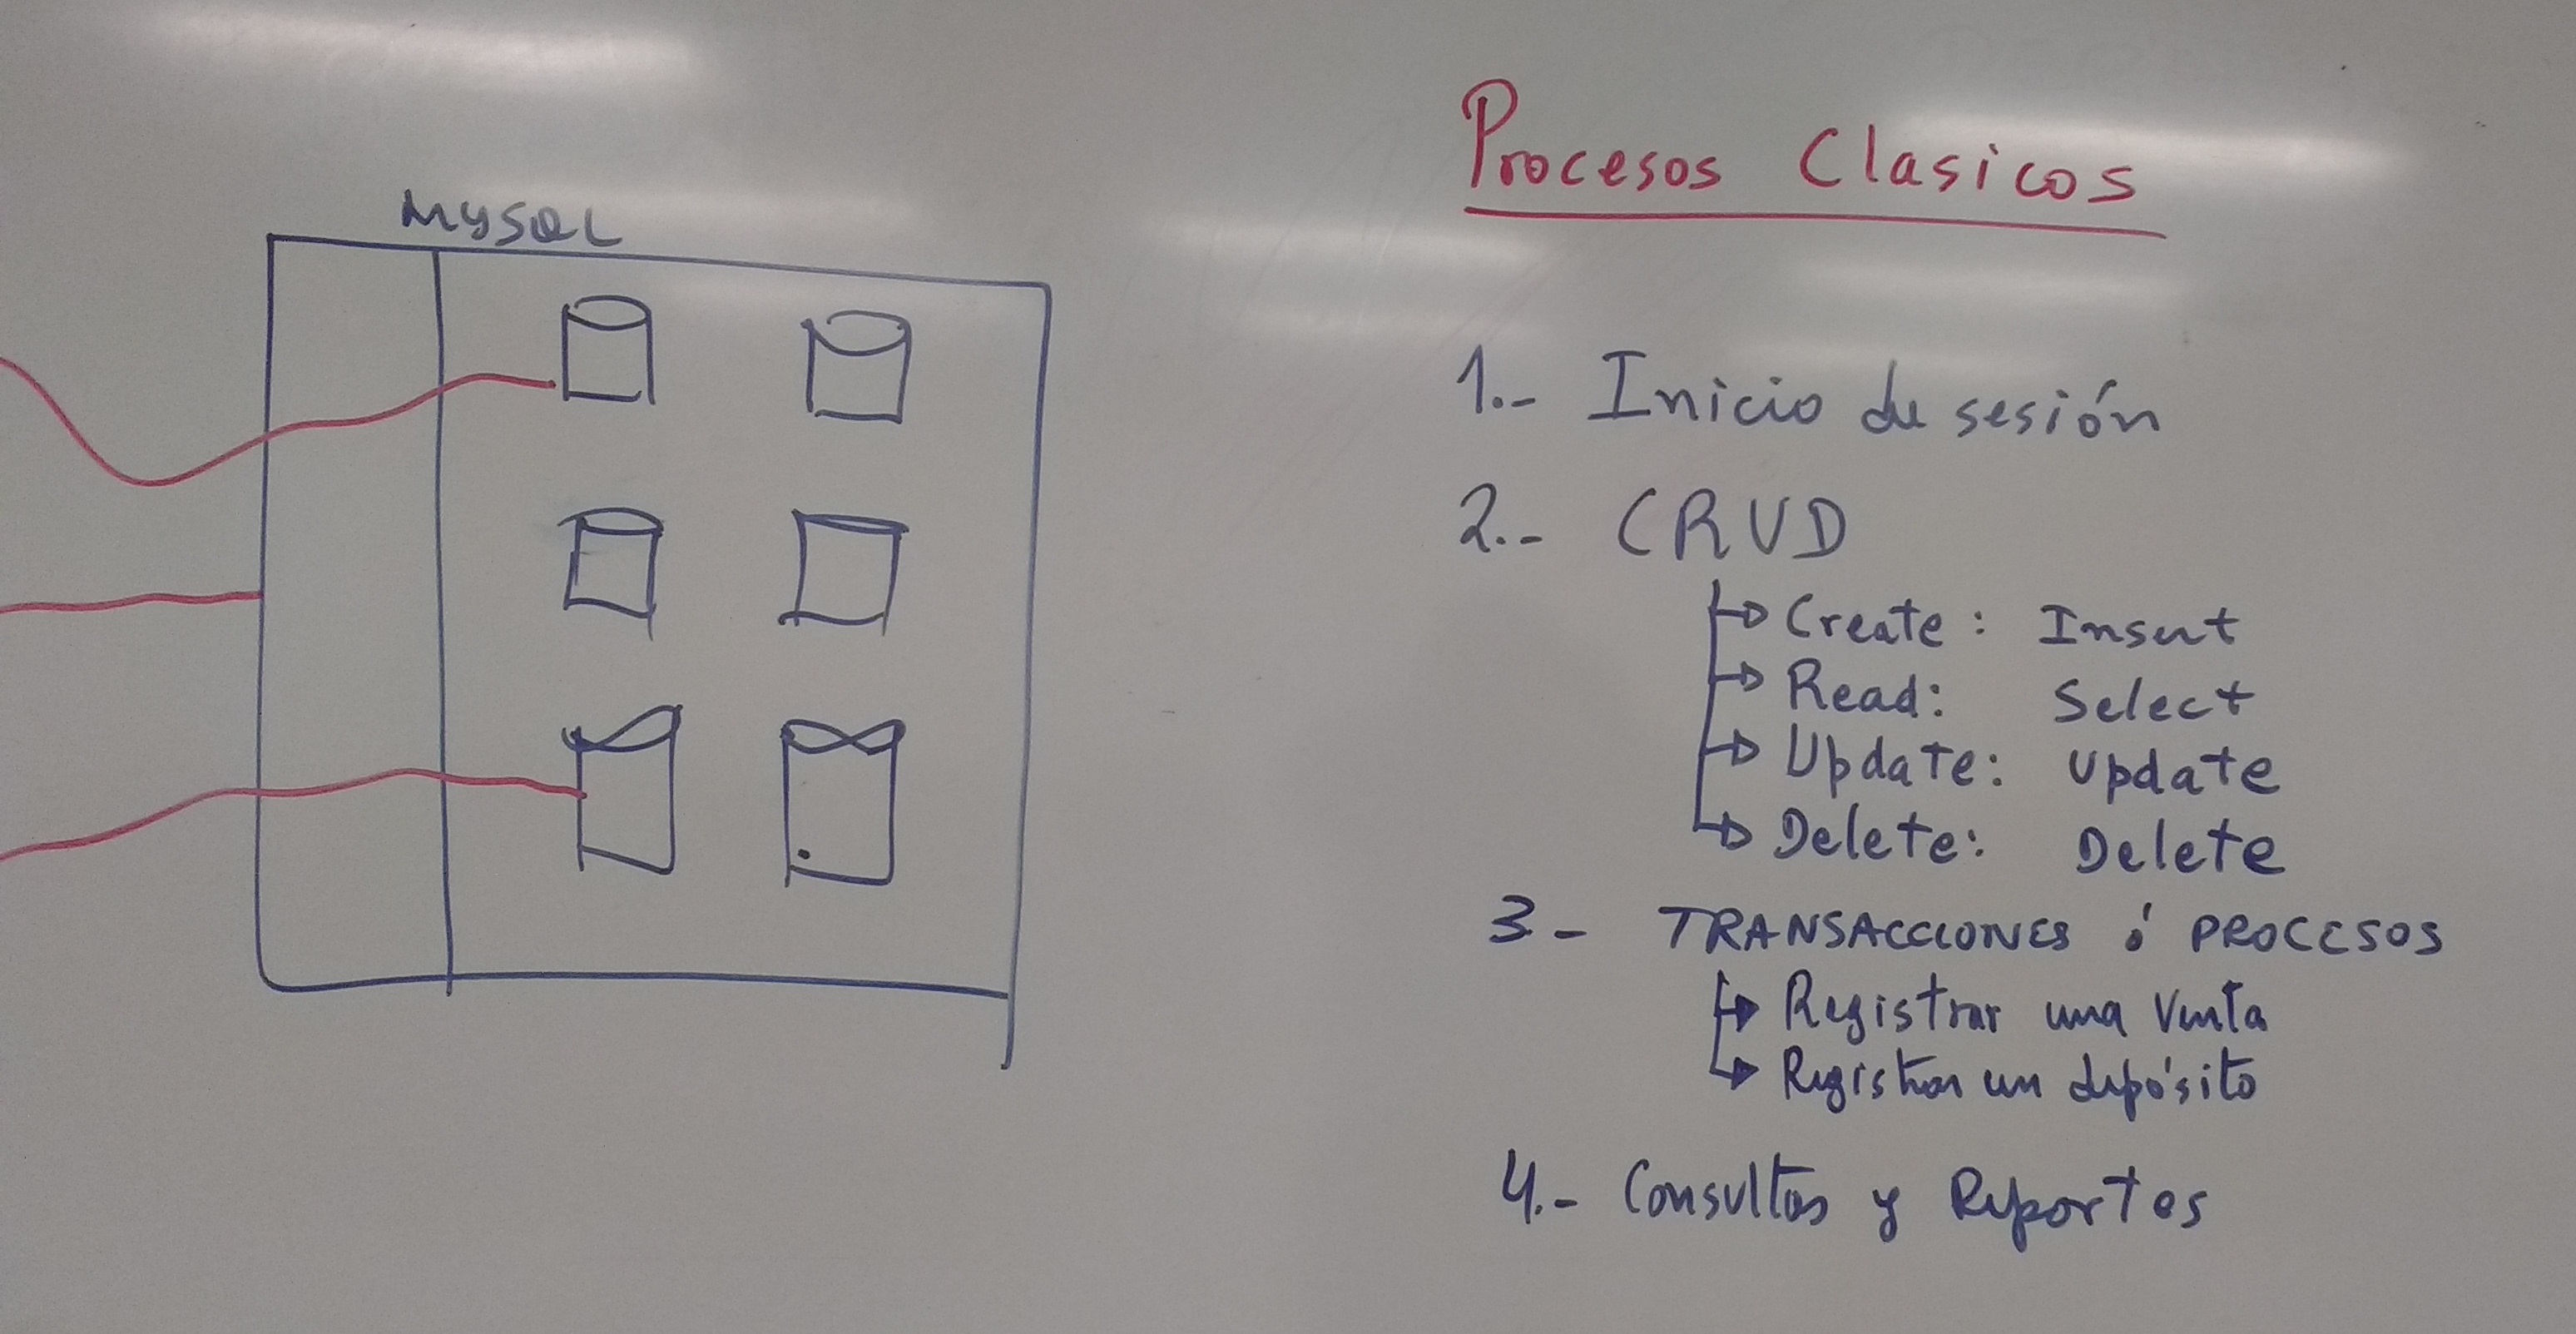 MYSQL
Procesos Clasicos
1.- Inicio de sesión
2.- CRUD
Create: Insert
Read: Select
Update: Update
Delete: Delete
3- TRANSACCIONES ó PROCESOS
Registrar una Venta
Registrar un depósito
4.- Consultas y Reportes